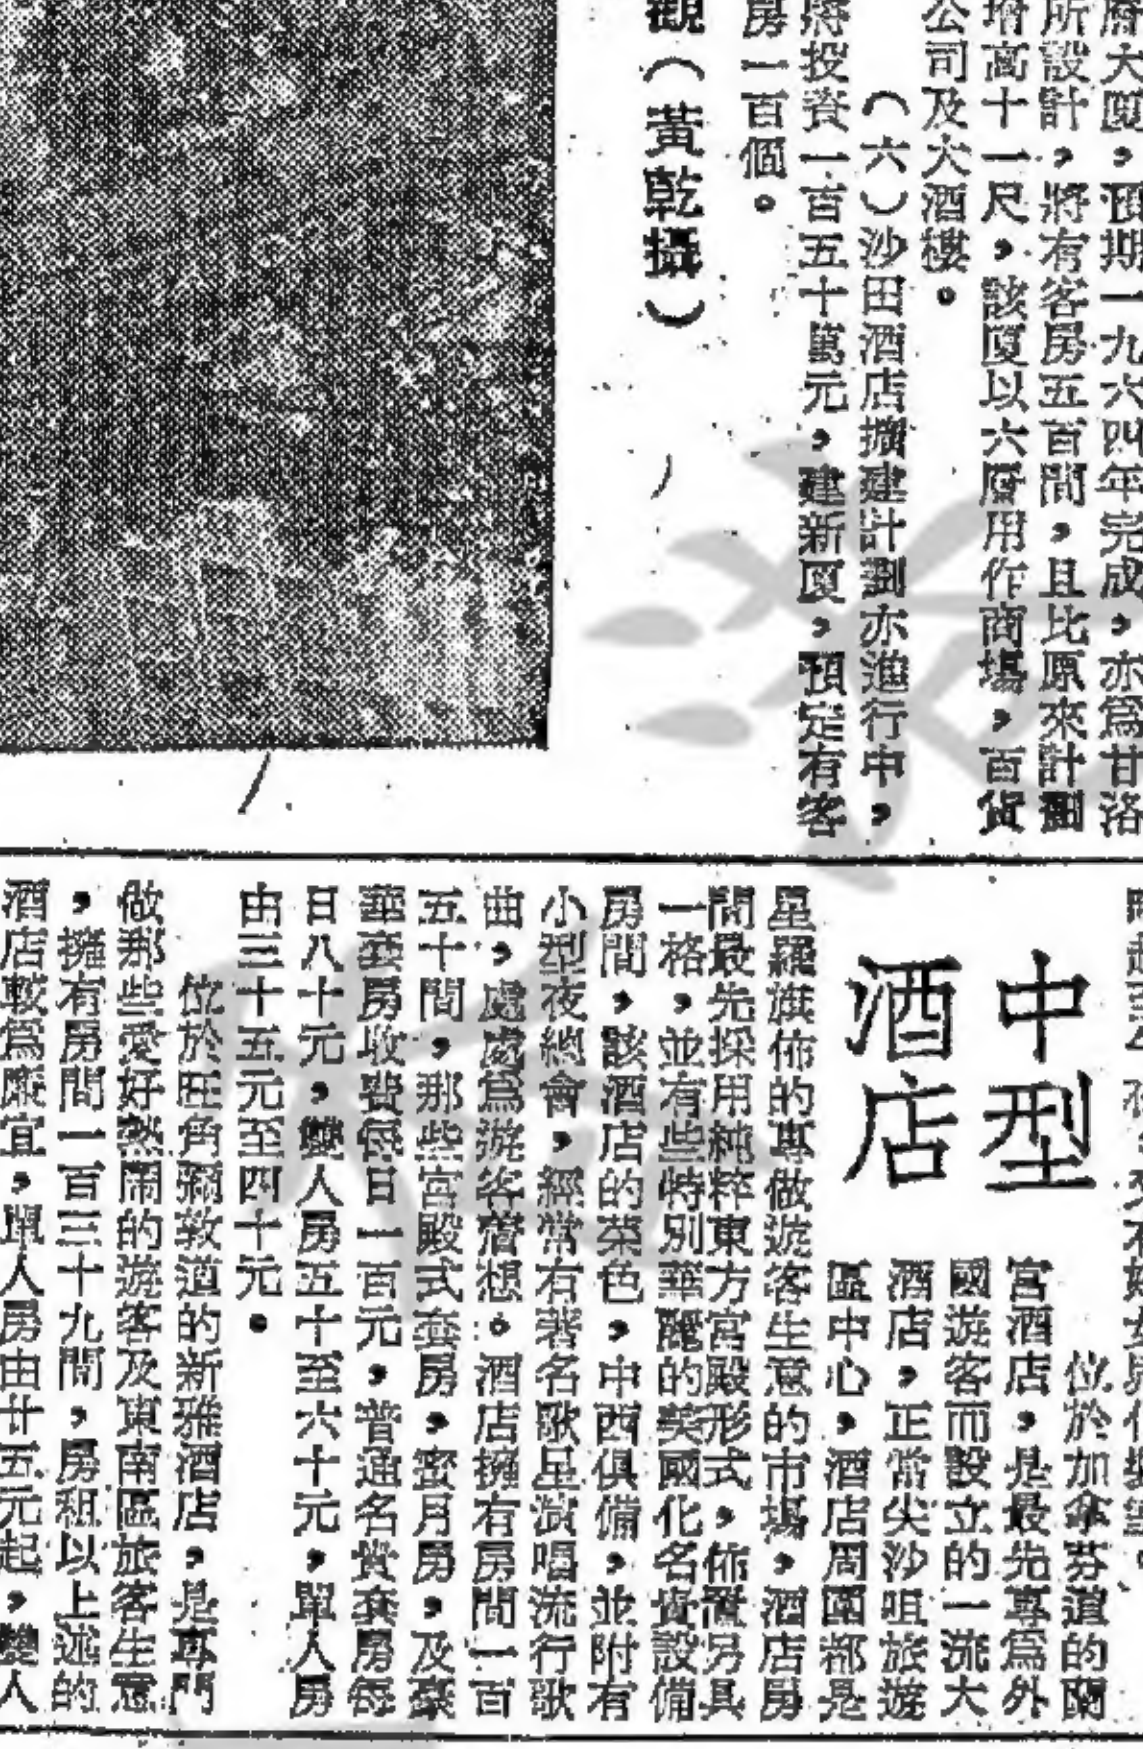 層大厦，預期一九六四年完成，亦爲甘洛
所設計，將有客房五百間，且比原來計劃
增高十一尺，該厦以六層用作商場，百貨
公司及大酒樓。
（六）沙田酒店擴建計劃亦進行中，
將投資一百五十萬元，建新厦，預定有客
房一百個。
觀（黃乾攝）
中型
酒店
位於加拿芬道的蘭
宮酒店，是最先專爲外
國遊客而設立的一流大
酒店，正當尖沙咀旅遊
區中心，酒店周圍都是
星羅旗佈的專做遊客生意的市場，酒店房
間最先採用純粹東方宮殿形式，佈置另具
一格，並有些特別華麗的美國化名貴設備
房間，該酒店的菜色，中西俱備，並附有
小型夜總會，經常有著名歌星演唱流行歌
曲，處處爲游客着想。酒店擁有房間一百
五十間，那些宮殿式套房，蜜月房，及豪
華套房收費每日一百元，普通名貴套房每
日八十元，雙人房五十至六十元，單人房
由三十五元至四十元。
位於旺角彌敦道的新雅酒店，是專門
做那些愛好熱鬧的遊客及東南區旅客生意
，擁有房間一百三十九間，房租以上述的
酒店較爲廉宜，單人房由廿五元起，雙人